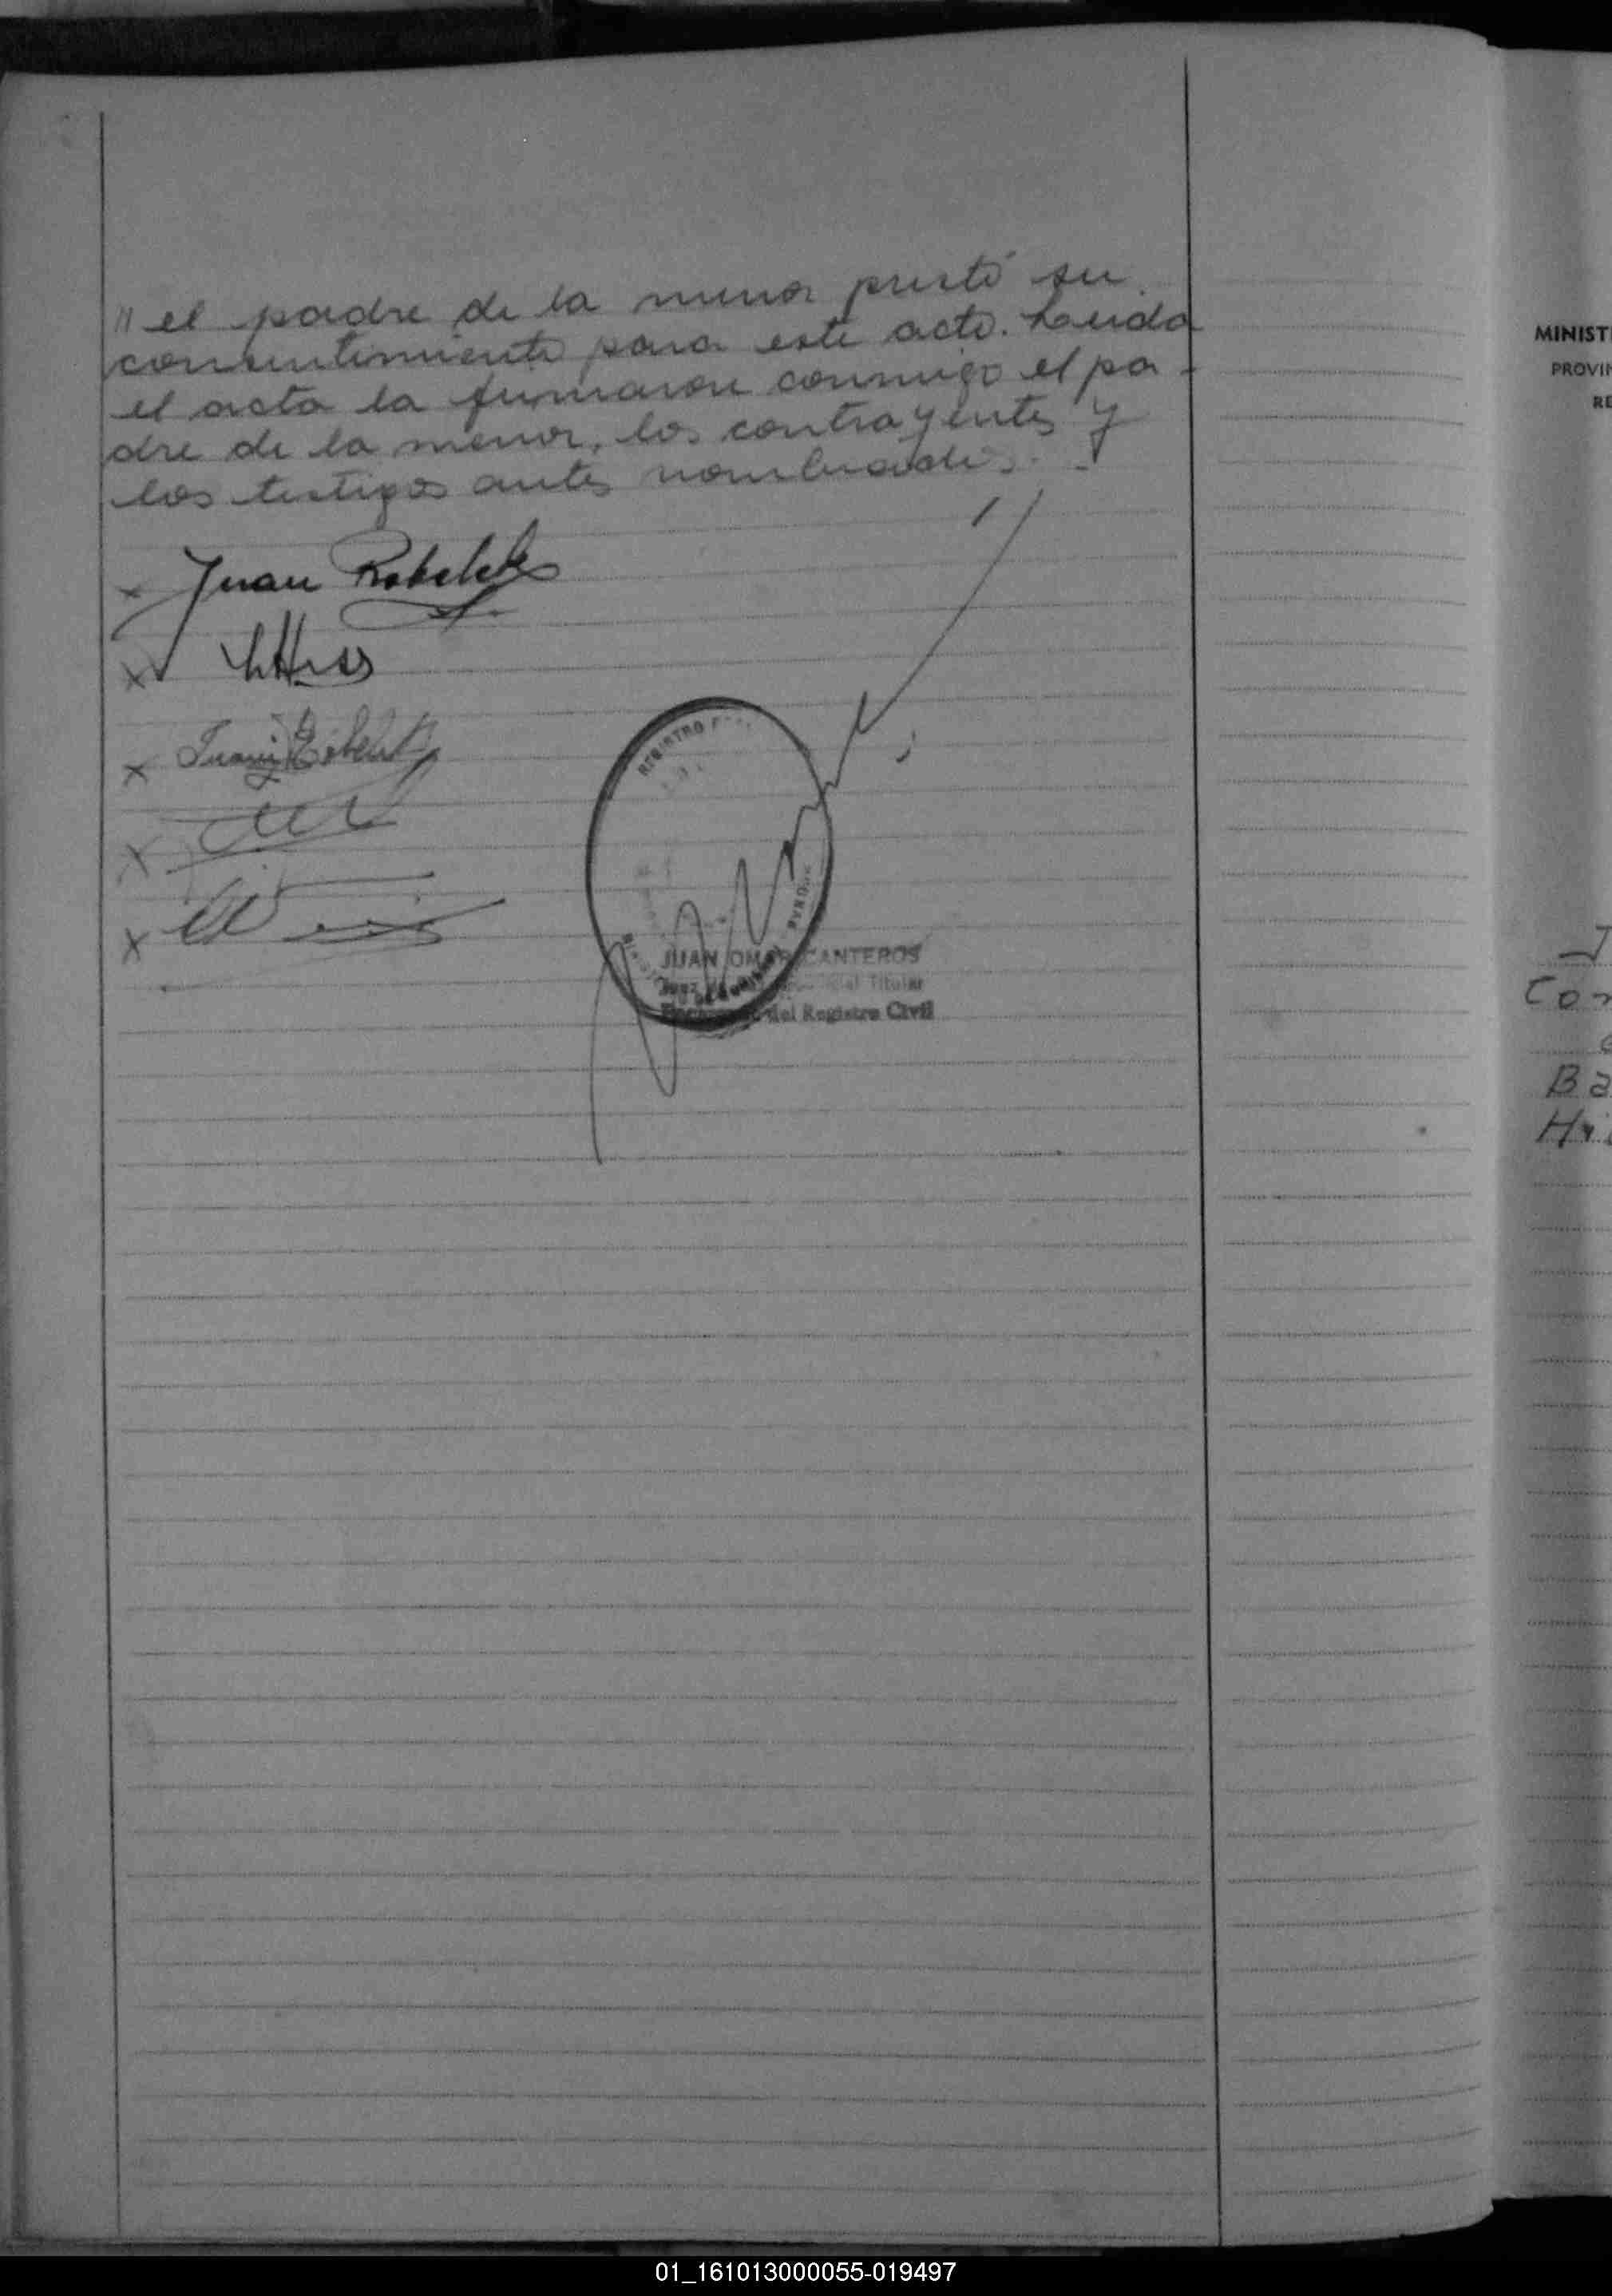 " el padre de la menor prestó su
consentimiento para este acto. Leida
el acta la firmaron conmigo el pa-
dre de la menor, los contrayentes y
los testigos antes nombrados.-
x Juan
x
x
x
x
REGISTRO
JUAN OMAR CANTEROS
Juez Titular
Encargado del Registro Civil
MINIST
PROVIN
RE
Con
Ba
01_161013000055-019497